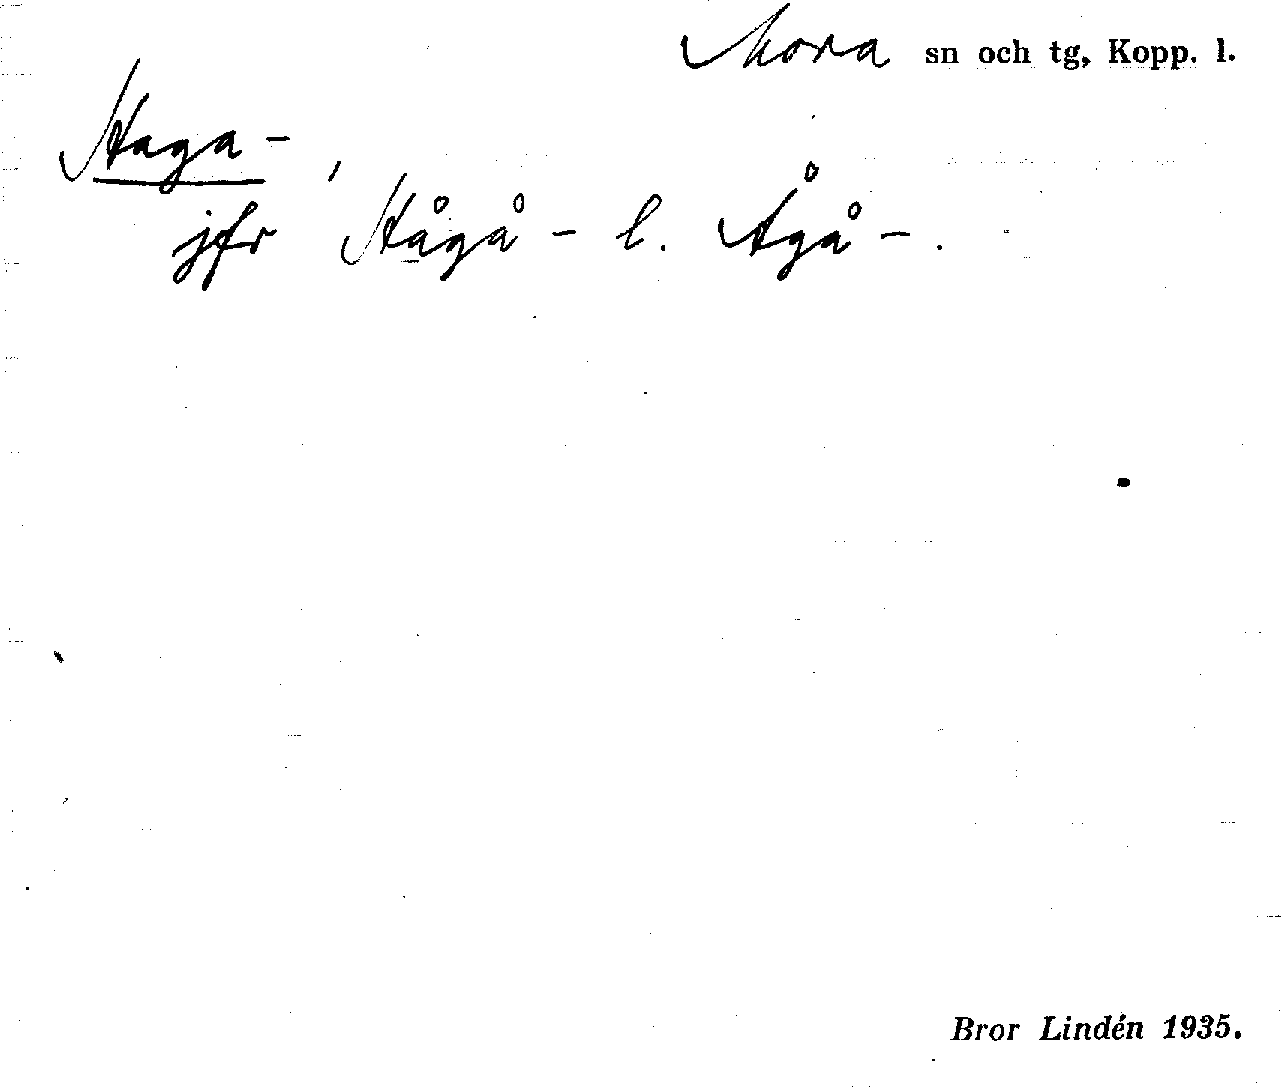 Mora sn och tg, Kopp. l.
Haga-,
jfr Hågå- l. Ågå-.
Bror Lindén 1935.